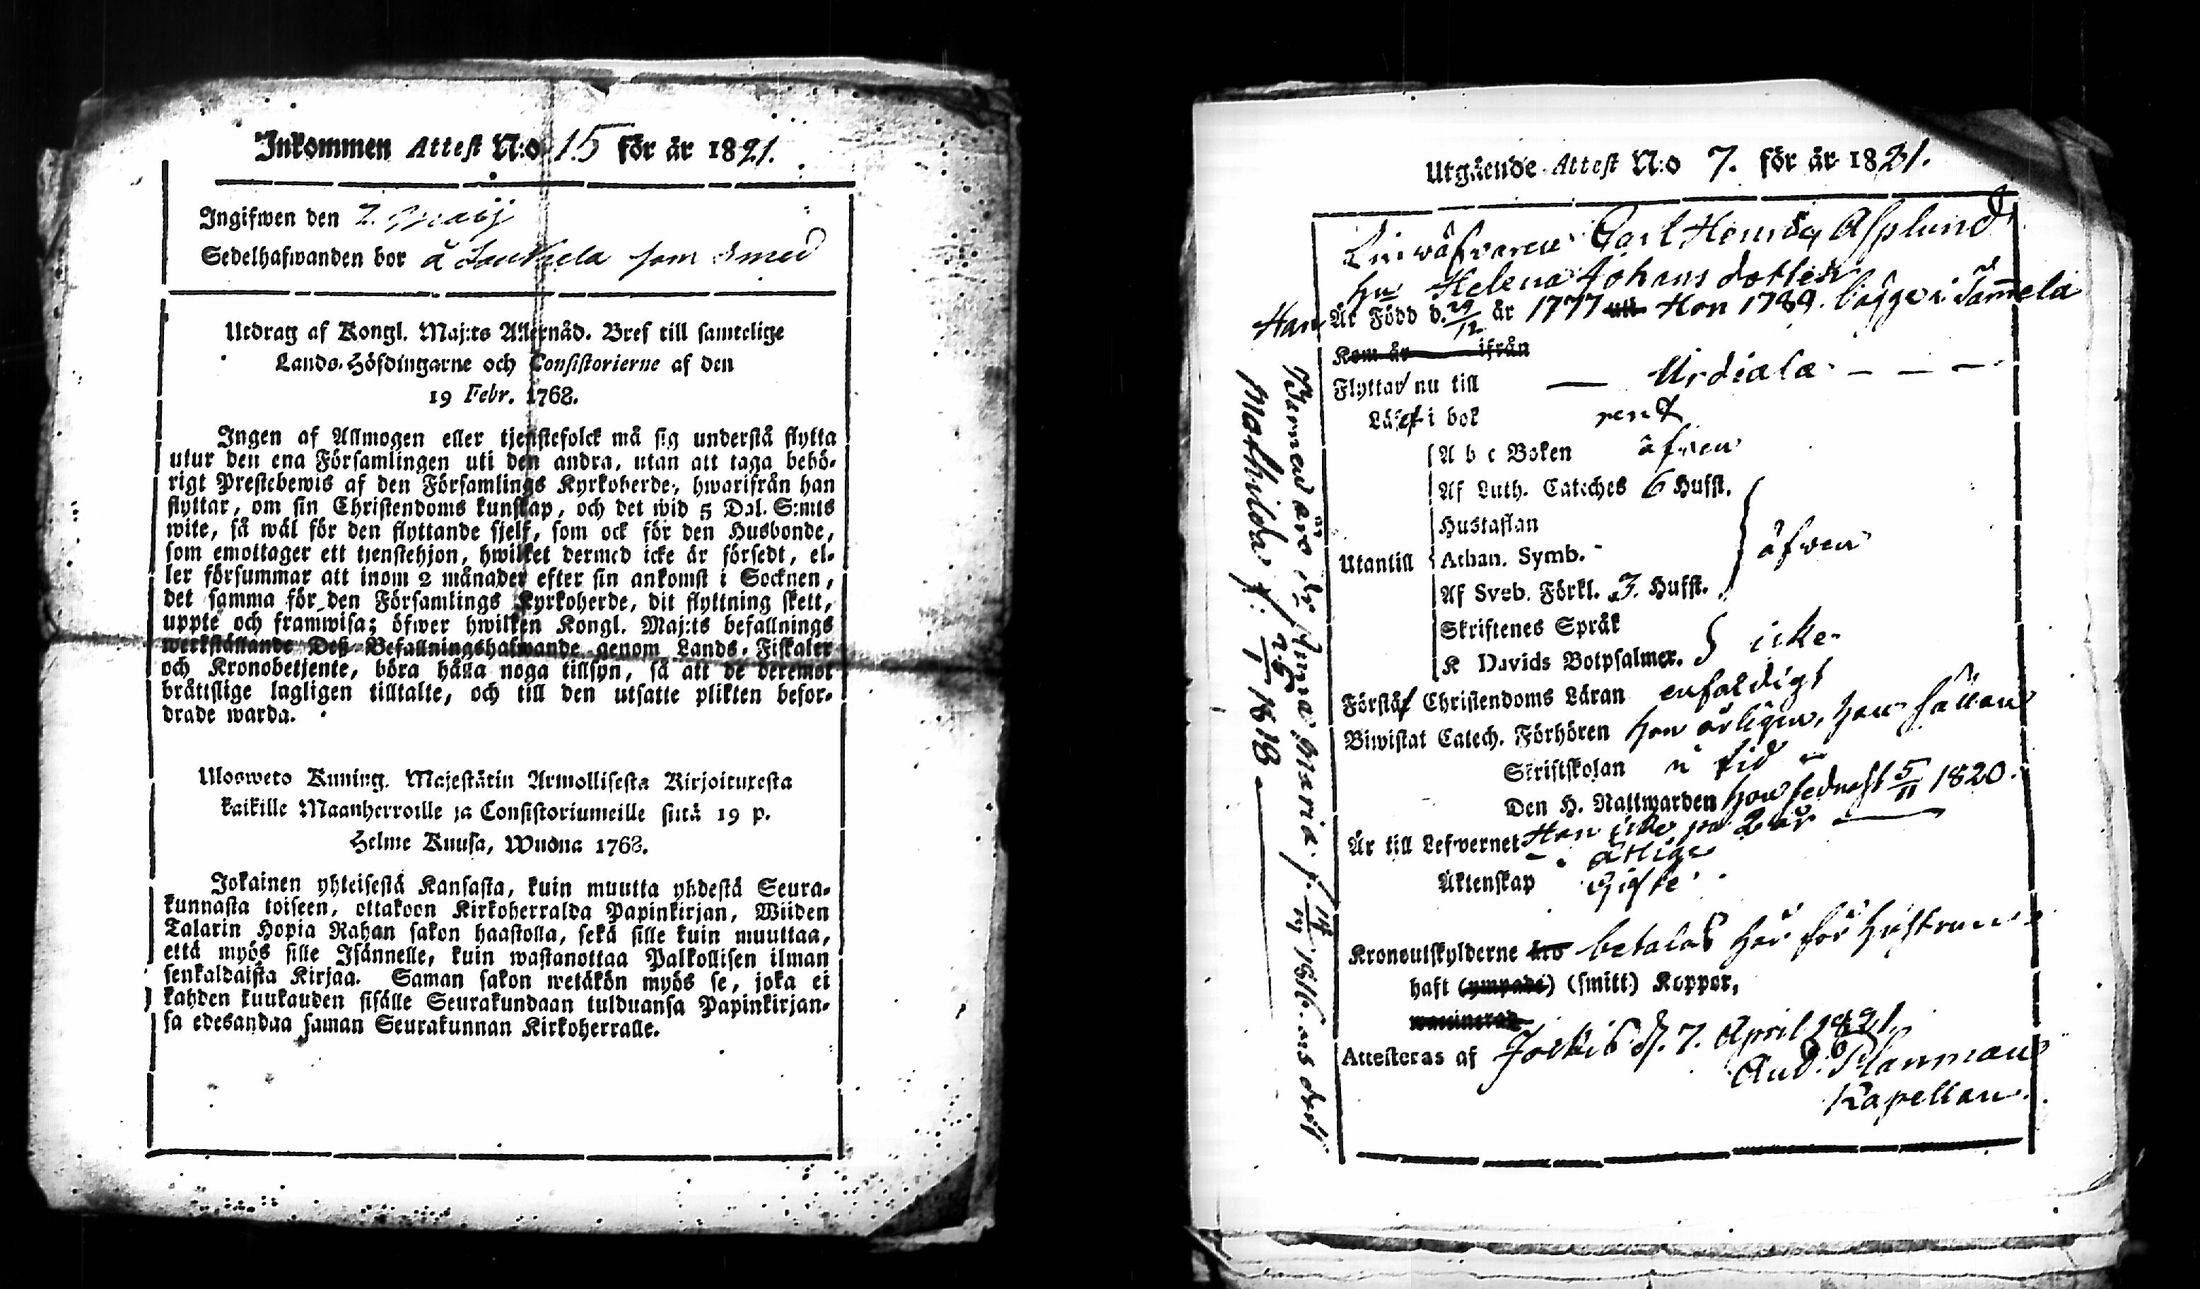 Inkommen Attest N:o 15 för år 1821.
Ingifwen den 7. Maij
Sedelhafwanden bor å Laukela som smed
Utdrag af Kongl. Maj:ts Allernåd. Bref till samtelige
Lands-Höfdingarne och Consistorierne af den
19 Febr. 1768.
Ingen af Allmogen eller tjenstefolck må sig understå flytta
utur den ena Församlingen uti den andra, utan att taga behö-
rigt Prestebewis af den Församlings Kyrkoherde, hwarifrån han
flyttar, om sin Christendoms kunskap, och det wid 5 Dal. S:mts
wite, så wäl för den flyttande sjelf, som ock för den Husbonde,
som emottager ett tjenstehjon, hwilket dermed icke är försedt, el-
ler försummar att inom 2 månader efter sin ankomst i Socknen,
det samma för den Församlings Kyrkoherde, dit flyttning skett,
uppte och framwisa; öfwer hwilken Kongl. Maj:ts befallnings
werkställande Deß Befallningshafwande genom Lands-Fiskaler
och Kronobetjente, böra hålla noga tillsyn, så att de deremot
bråttslige lagligen tilltalte, och till den utsatte plikten befor-
drade warda.
Ulosweto Kuning. Majestätin Armollisesta Kirjoituxesta
kaikille Maanherroille ja Consistoriumeille siitä 19 p.
Helme Kuusa, Wuona 1768.
Jokainen yhteisestä Kansasta, kuin muutta yhdestä Seura-
kunnasta toiseen, ottakoon Kirkoherralda Papinkirjan, Wiiden
Talarin Hopia Rahan sakon haastolla, sekä sille kuin muuttaa,
että myös sille Isännelle, kuin wastanottaa Palkollisen ilman
senkaldaista Kirjaa. Saman sakon wetäkön myös se, joka ei
kahden kuukauden sisälle Seurakundaan tulduansa Papinkirjan-
sa edesandaa saman Seurakunnan Kirkoherralle.
Utgående Attest N:o 7. för år 1821.
Linwäfvaren Carl Henric Asplund
Hu Helena Johans dotter
Han Är Född d. 29/12 år 1777 Hon 1789. bägge i Tammela
Kom år ifrån
Flyttar nu till Urdiala
Läsa i bok rent
A b c Boken äfven
Af Luth. Cateches 6 Hufst.
Hustaflan
Utantill Athan. Symb. äfven
Af Sveb. Förkl. 3. Hufst.
Skriftenes Språk
K Davids Botpsalmer. icke
Förstå Christendoms Läran enfaldigt
Biwistat Catech. Förhören hon årligen, han sällan
Skriftskolan
Den H. Nattwarden hon sednast 5/11 1820.
Han icke på 2 år
Är till Lefwernet ärlige
Äktenskap Gifte
Kronoutskylderne äro betalas här för Hustrun
haft (ympade) (smitt.) Koppor,
waccinerad
Attesteras af Jockis d. 7. April 1821.
And. Planman
Kapellan.
Barnen äro Anna Maria f. 1816.
Mathilda f: 25/1 1818